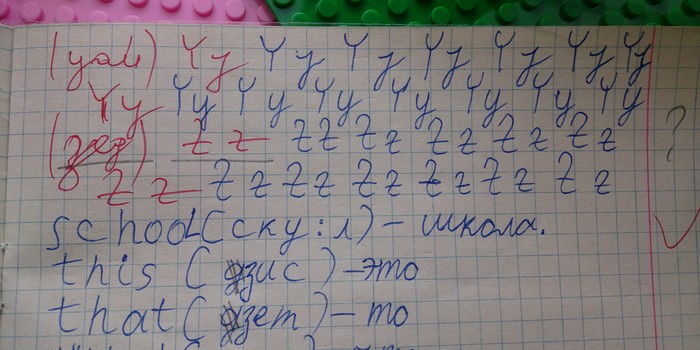 (уай) Yy Yy Yy Yy Yy Yy Yy
Yy Yy Yy Yy Yy Yy Yy Yy
(зед) Zz Zz Zz Zz Zz Zz
Zz Zz Zz Zz Zz Zz Zz ?
school (ску:л) - школа.
this (зис) - это
that (зет) - то